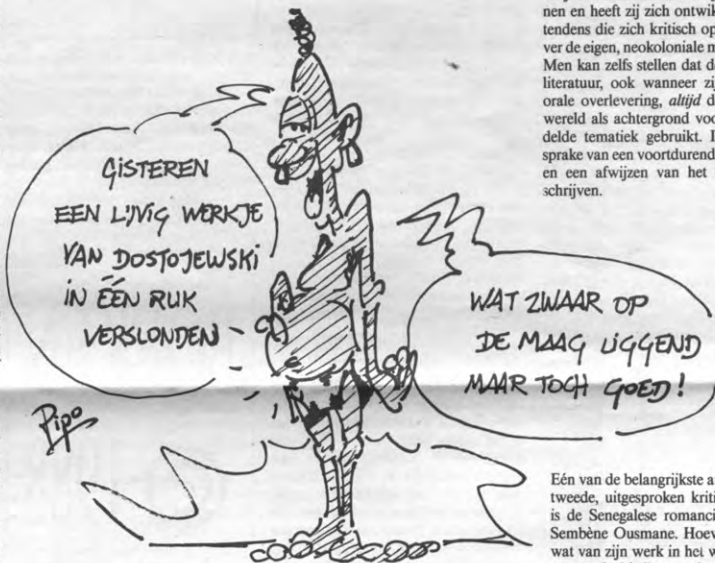 nen en heeft zij zich ontwik
tendens die zich kritisch op
ver de eigen, neokoloniale m
Men kan zelfs stellen dat d
literatuur, ook wanneer zij
orale overlevering, altijd d
wereld als achtergrond voo
delde tematiek gebruikt. I
sprake van een voortdurend
en een afwijzen van het
schrijven.
GISTEREN
EEN LIJVIG WERKJE
VAN DOSTOJEWSKI
IN ÉÉN RUK
VERSLONDEN
WAT ZWAAR OP
DE MAAG LIGGEND
MAAR TOCH GOED!
Pipo
Eén van de belangrijkste a
tweede, uitgesproken kriti
is de Senegalese romanci
Sembène Ousmane. Hoev
wat van zijn werk in het w